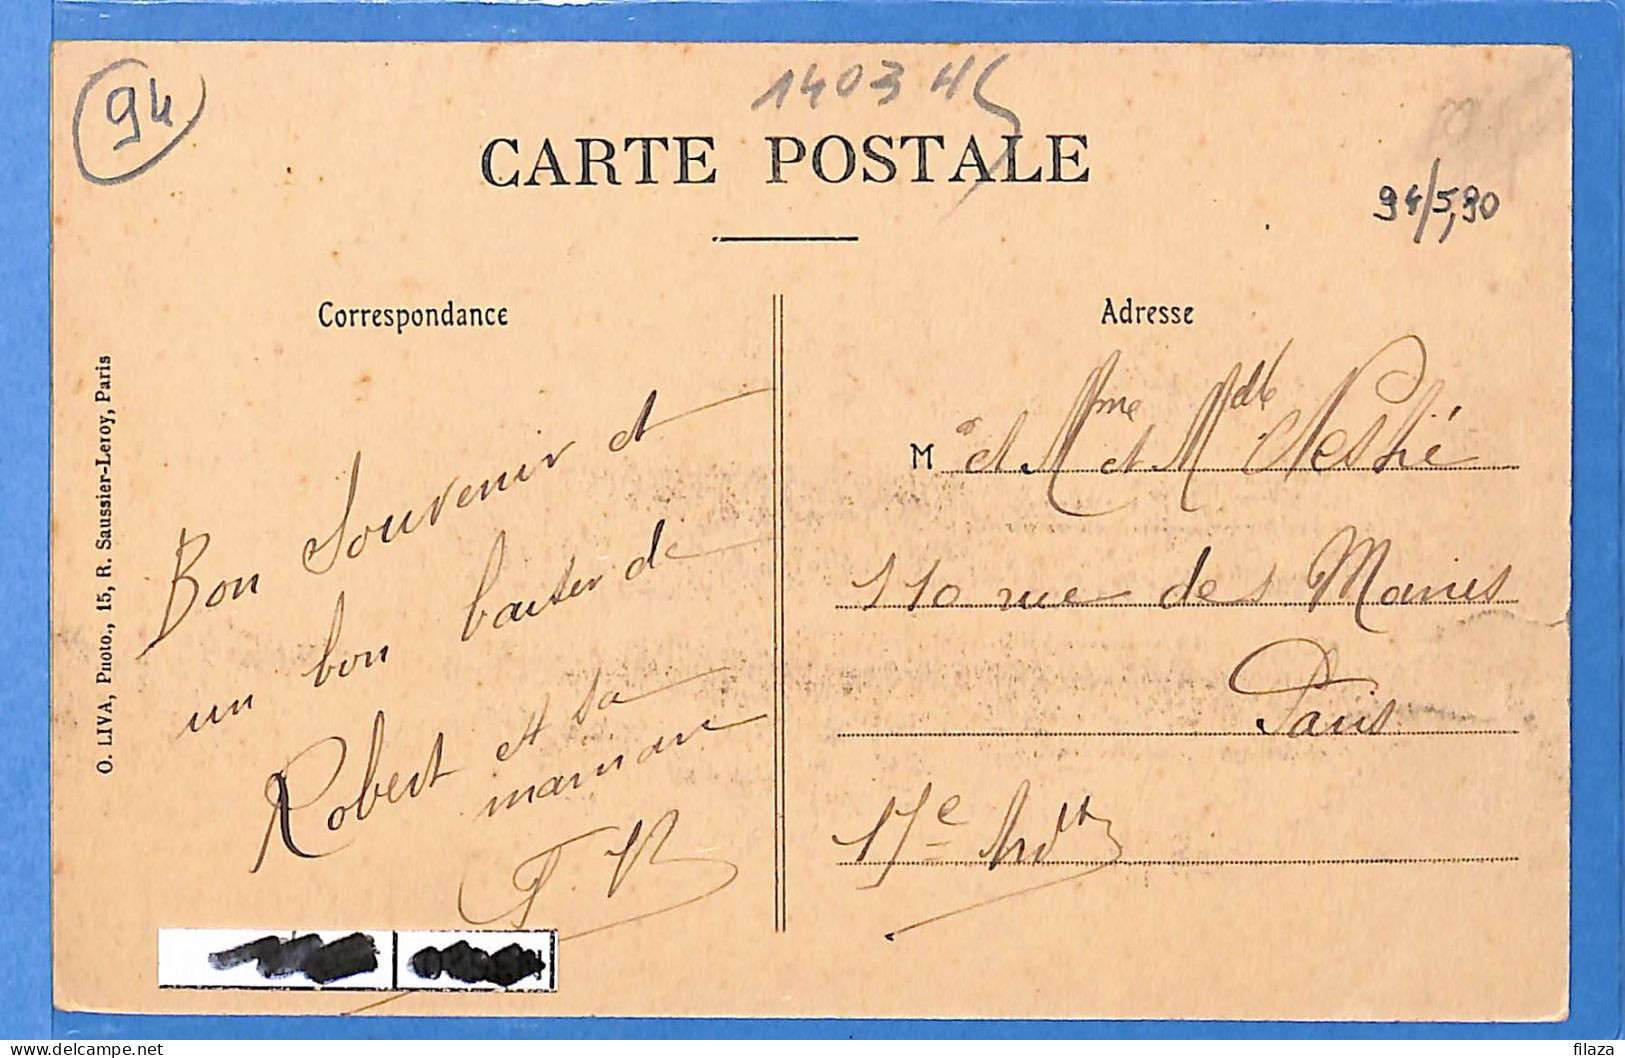 94
CARTE POSTALE
94/5,90
Correspondance
Adresse
O. LIVA, Photo., 15, R. Saussier-Leroy, Paris
Bon Souvenir et
un bon baiser de
Robert et sa
maman
M et Mme et Mdlle
110 rue des
Paris
17e Ardt
delcampe.net
filaza